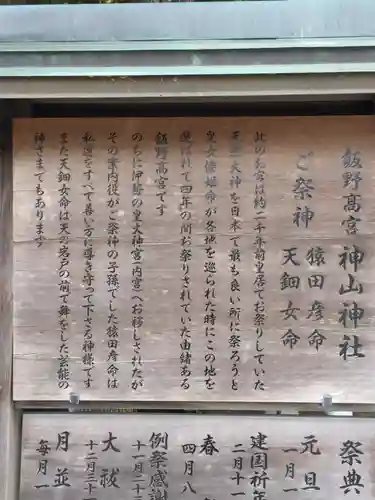 飯野高宮 神山神社
ご祭神 猿田彦命
天鈿女命
此のお宮は約二千年前皇居でお祭りしていた
天照大神を日本で最も良い所に祭ろうと
皇女倭姫命が各地を巡られた時にこの地を
選ばれて四年の間お祭りされていた由緒ある
飯野高宮です
のちに伊勢の皇大神宮内宮へお移しされたが
その案内役がご祭神の子孫でした猿田彦命は
私達をすべて善い方に導き守って下さる神様です
また天鈿女命は天の岩戸の前で舞をした芸能の
神さまでもあります
祭典
元旦 一月
建国祈 二月十一
春 四月八
例祭感謝 十一月二
大祓 十二月三十
月並 毎月一